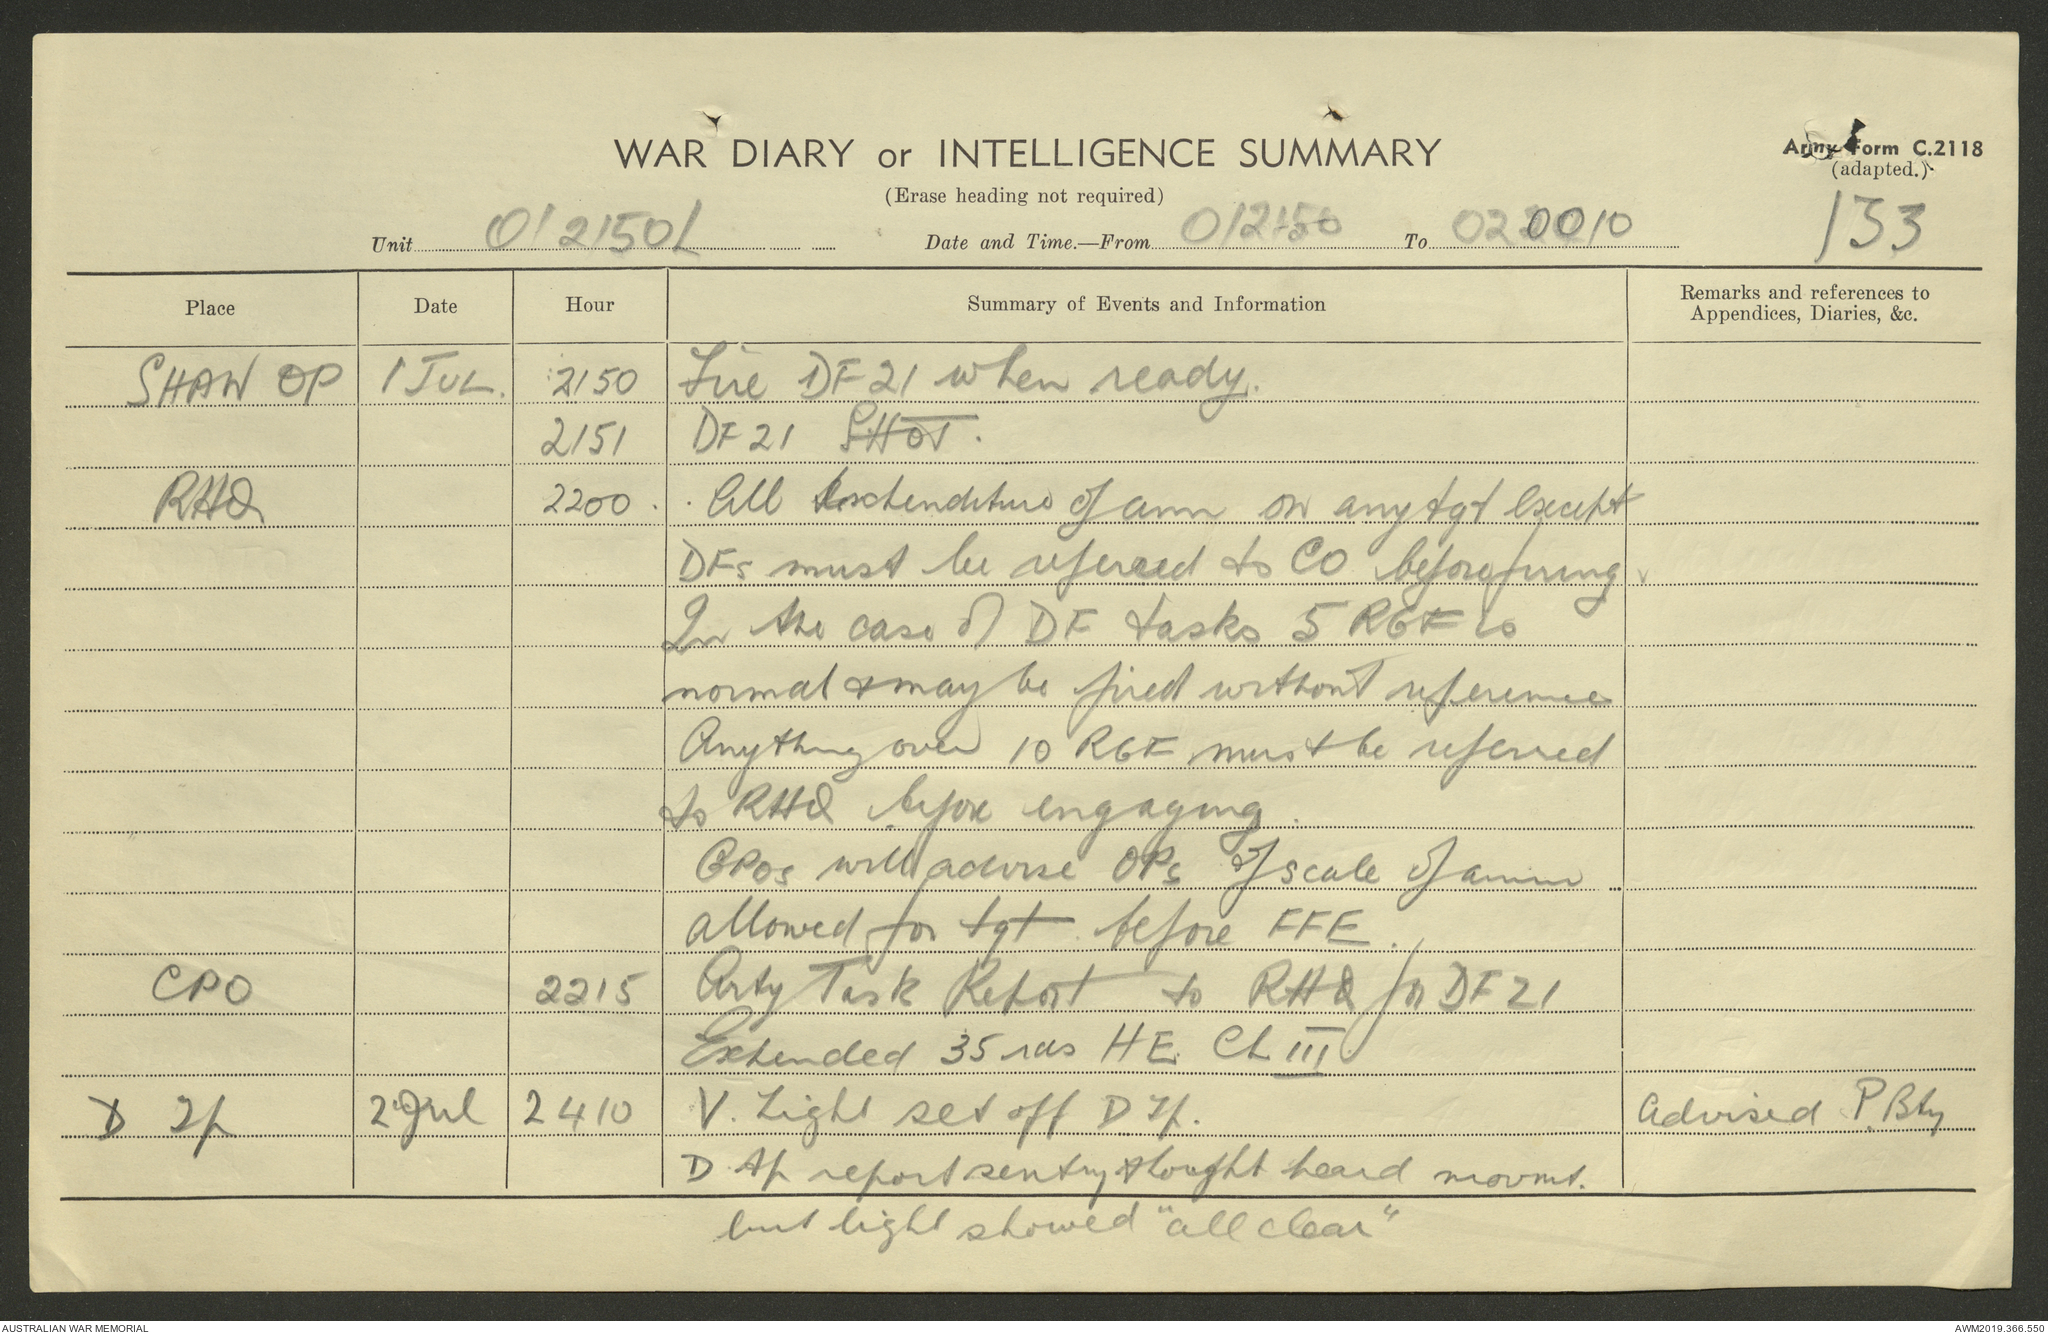 WAR DIARY or INTELLIGENCE SUMMARY
Army Form C.2118
(adapted.)
(Erase heading not required)
133
Unit 012150L Date and Time.—From 012150 To 020010
Place Date Hour Summary of Events and Information Remarks and references to Appendices, Diaries, &c.
SHAW OP 1 JUL. 2150 Fire DF 21 when ready.
2151 DF 21 SHOT.
RHQ 2200. All expenditure of amn on any tgt except
DFs must be referred to CO before firing
In the case of DF tasks 5 RGF is
normal & may be fired without reference
Anything over 10 RGF must be referred
to RHQ before engaging.
GPOs will advise OPs of scale of amn
allowed for tgt before FFE.
CPO 2215 Arty Task Report to RHQ for DF 21
Expended 35 rds HE Ch III
D Tp 2 Jul 2410 V. Light set off D Tp. Advised P. Bty
D Tp report sentry thought heard movmt.
but light showed "all clear"
AUSTRALIAN WAR MEMORIAL
AWM2019.366.550